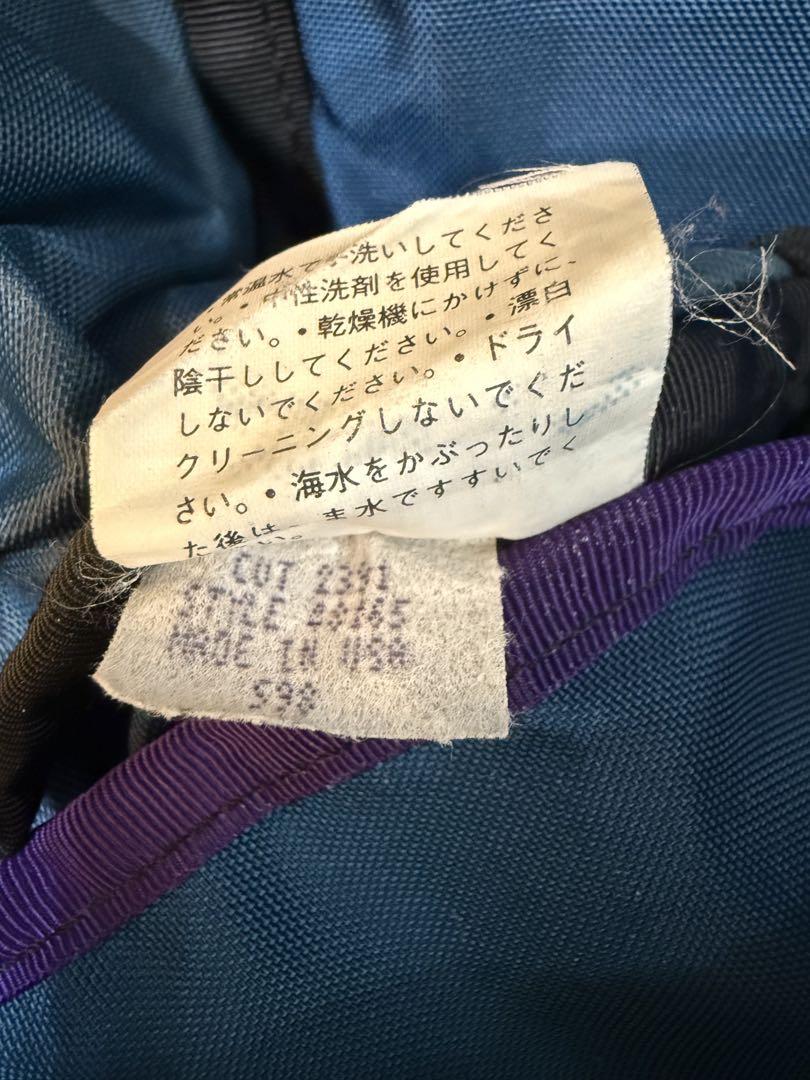 ・常温水で手洗いしてくださ
い。・中性洗剤を使用してく
ださい。・乾燥機にかけずに、
陰干ししてください。・漂白
しないでください。・ドライ
クリーニングしないでくだ
さい。・海水をかぶったりし
た後は、真水ですすいでく
CUT 2391
STYLE
MADE IN USA
S98